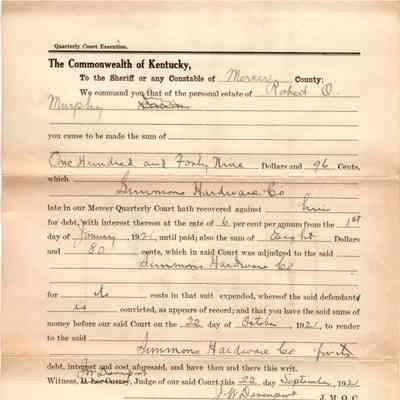 Quarterly Court Execution.
The Commonwealth of Kentucky,
To the Sheriff or any Constable of Mercer County:
We command you that of the personal estate of Robert O.
Murphy
you cause to be made the sum of
One Hundred and Forty Nine Dollars and 96 Cents,
which
Simmons Hardware Co
late in our Mercer Quarterly Court hath recovered against him
for debt, with interest thereon at the rate of 6 per cent per annum from the 1st
day of January, 1921, until paid; also the sum of Eight Dollars
and 80 cents, which in said Court was adjudged to the said
Simmons Hardware Co
for its costs in that suit expended, whereof the said defendant
is convicted, as appears of record; and that you have the said sums of
money before our said Court on the 22 day of October, 1921, to render
to the said
Simmons Hardware Co for its
debt, interest and cost aforesaid, and have then and there this writ.
Witness, Judge of our said Court this 22 day September, 1921
J W Davenport
J. M. Q. C.